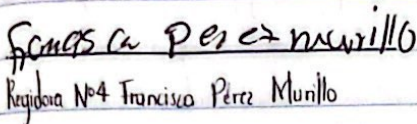 Francisca Perez murillo
Regidora Nº4 Francisca Pérez Murillo